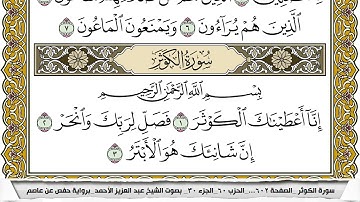 الَّذِينَ هُمْ يُرَآءُونَ ٦ وَيَمْنَعُونَ الْمَاعُونَ ٧
سُورَةُ الْكَوْثَرِ
بِسْمِ اللَّهِ الرَّحْمَٰنِ الرَّحِيمِ
إِنَّا أَعْطَيْنَاكَ الْكَوْثَرَ ١ فَصَلِّ لِرَبِّكَ وَانْحَرْ ٢
إِنَّ شَانِئَكَ هُوَ الْأَبْتَرُ ٣
سورة الكوثر _الصفحة ٦٠٢... الحزب ٦٠_الجزء ٣٠_ بصوت الشيخ عبد العزيز الأحمد_برواية حفص عن عاصم